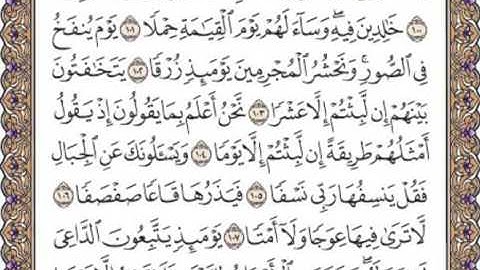 ١٠٠ خَٰلِدِينَ فِيهِۖ وَسَآءَ لَهُمۡ يَوۡمَ ٱلۡقِيَٰمَةِ حِمۡلٗا ١٠١ يَوۡمَ يُنفَخُ
فِي ٱلصُّورِۚ وَنَحۡشُرُ ٱلۡمُجۡرِمِينَ يَوۡمَئِذٖ زُرۡقٗا ١٠٢ يَتَخَٰفَتُونَ
بَيۡنَهُمۡ إِن لَّبِثۡتُمۡ إِلَّا عَشۡرٗا ١٠٣ نَّحۡنُ أَعۡلَمُ بِمَا يَقُولُونَ إِذۡ يَقُولُ
أَمۡثَلُهُمۡ طَرِيقَةً إِن لَّبِثۡتُمۡ إِلَّا يَوۡمٗا ١٠٤ وَيَسۡـَٔلُونَكَ عَنِ ٱلۡجِبَالِ
فَقُلۡ يَنسِفُهَا رَبِّي نَسۡفٗا ١٠٥ فَيَذَرُهَا قَاعٗا صَفۡصَفٗا ١٠٦
لَّا تَرَىٰ فِيهَا عِوَجٗا وَلَآ أَمۡتٗا ١٠٧ يَوۡمَئِذٖ يَتَّبِعُونَ ٱلدَّاعِيَ